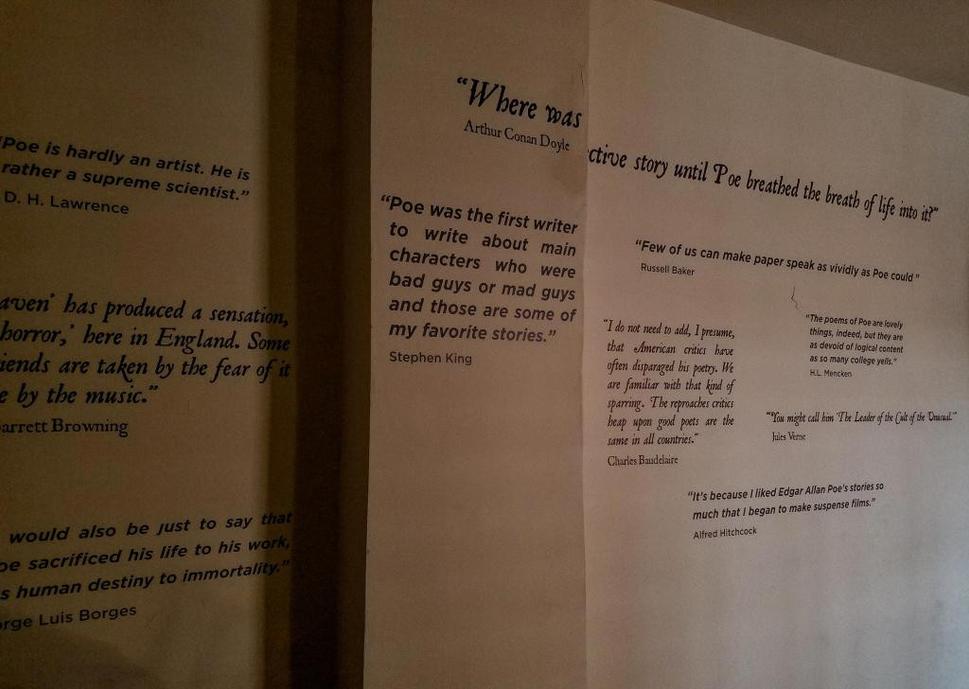 "Poe is hardly an artist. He is
rather a supreme scientist."
D. H. Lawrence
aven' has produced a sensation,
horror,' here in England. Some
iends are taken by the fear of it
e by the music."
arrett Browning
would also be just to say that
oe sacrificed his life to his work,
s human destiny to immortality."
orge Luis Borges
"Where was
Arthur Conan Doyle
"Poe was the first writer
to write about main
characters who were
bad guys or mad guys
and those are some of
my favorite stories."
Stephen King
ctive story until Poe breathed the breath of life into it?"
"Few of us can make paper speak as vividly as Poe could"
Russell Baker
"The poems of Poe are lovely
things, indeed, but they are
as devoid of logical content
as so many college yells."
H.L. Mencken
"I do not need to add, I presume,
that American critics have
often disparaged his poetry. We
are familiar with that kind of
sparring. The reproaches critics
heap upon good poets are the
same in all countries."
Charles Baudelaire
"You might call him 'The Leader of the Cult of the Unusual.'"
Jules Verne
"It's because I liked Edgar Allan Poe's stories so
much that I began to make suspense films."
Alfred Hitchcock